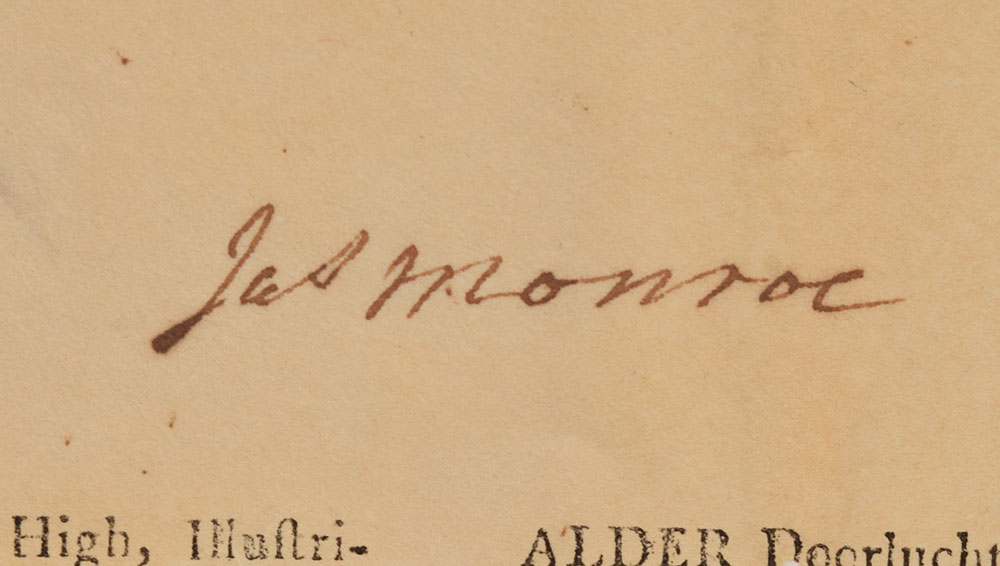 Jas Monroe
High, Illuſtri-
ALDER Doorlucht